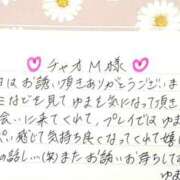 チャオM様
日はお誘い頂きありがとうございま
ミなどを見てゆまを気になって頂き
会いに来てくれて、プレイではゆま
ぱい感じて気持ち良くなってくれて嬉
の話し…(笑)またお誘いお待ちして
ゆま